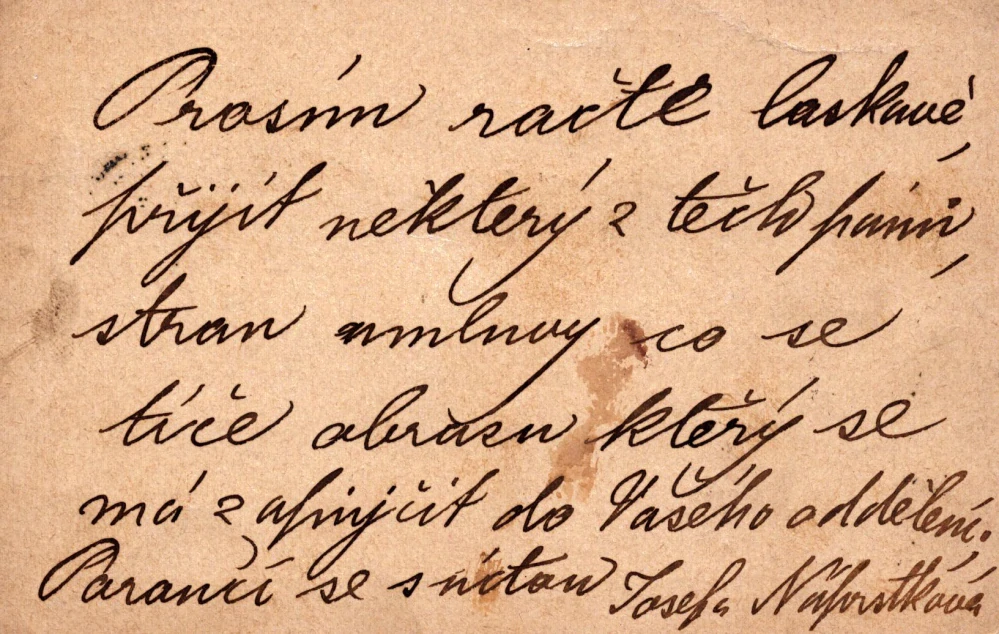 Prosím račte laskavě,
přijít některý z těch pánů,
stran umluvy co se
tíče obrasu kteřý se
má zapujčit do Vašého oddělení.
Poroučí se s úctou Josefa Náprstková